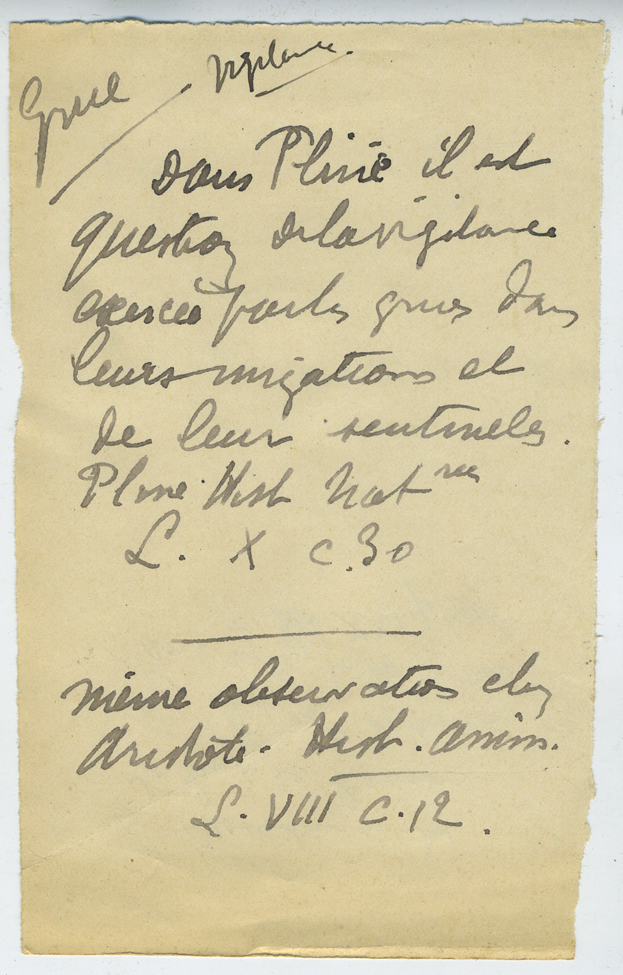 Grue / Vigilance.
Dans Pline il est
question de la vigilance
exercée par les grues dans
leurs migrations et
de leur sentinelles.
Pline Hist Nat
L. X C. 30
même observation chez
Aristote. Hist. Anim.
L. VIII C. 12.